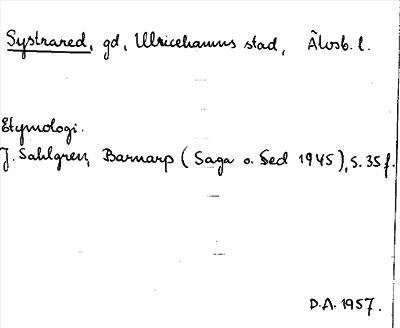 Systrared, gd, Ulricehamns stad, Älvsb. l.
Etymologi.
J. Sahlgren, Barnarp (Saga o. Sed 1945), s. 35 f.
D.A. 1957.